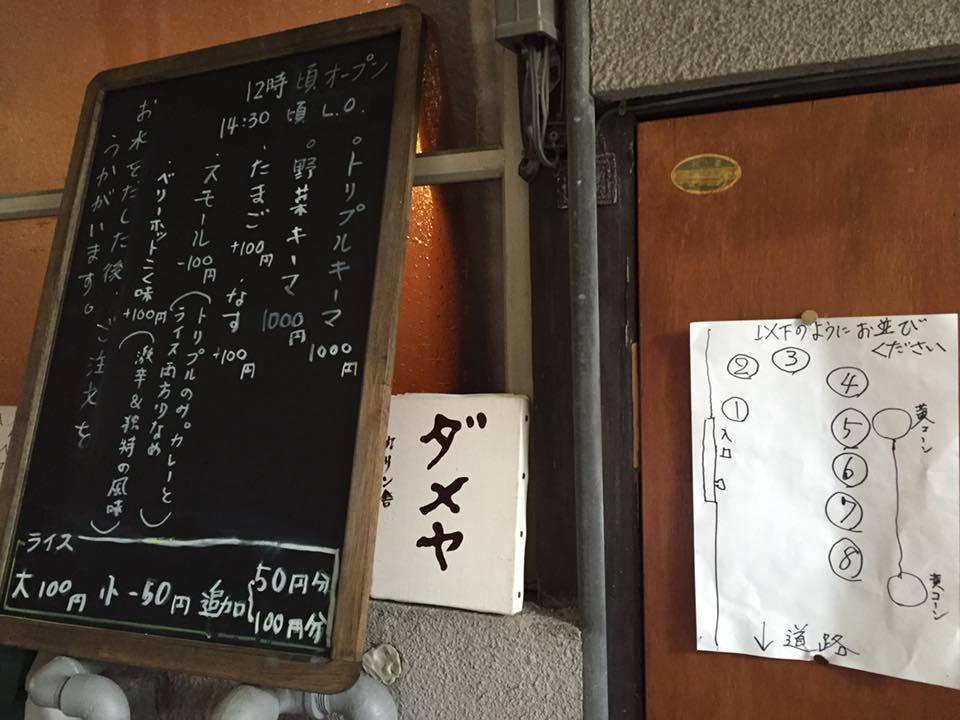 12時頃オープン
14:30頃 L.O.
。トリプルキーマ 1000円
。野菜キーマ 1000円
・たまご +100円 ・なす +100円
・スモール -100円 (トリプルのみ。カレーと
ライス両方少なめ)
・ベリーホットこく味 +100円 (激辛&独特の風味)
お水をだした後、ご注文を
うかがいます。
ライス
大100円 小-50円 追加{50円分
100円分
ダメヤ
以下のようにお並び
ください
① ② ③ ④ ⑤ ⑥ ⑦ ⑧
入口
黄コーン
黄コーン
↓道路